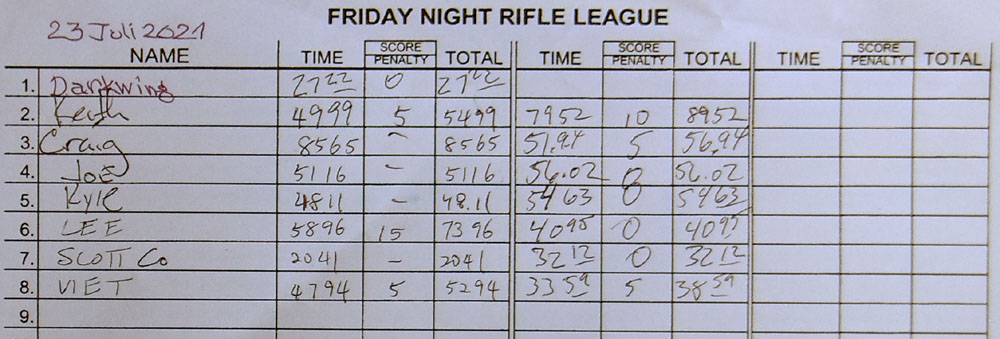 FRIDAY NIGHT RIFLE LEAGUE
23 Juli 2021
NAME TIME SCORE PENALTY TOTAL TIME SCORE PENALTY TOTAL TIME SCORE PENALTY TOTAL
1. Darkwing 2722 0 2722
2. Keith 4999 5 5499 7952 10 8952
3. Craig 8565 - 8565 51.94 5 56.94
4. JOE 5116 - 5116 56.02 0 56.02
5. Kyle 4811 - 48.11 5463 0 5463
6. LEE 5896 15 7396 4095 0 4095
7. SCOTT Co 2041 - 2041 3212 0 3212
8. VIET 4794 5 5294 3359 5 3859
9.